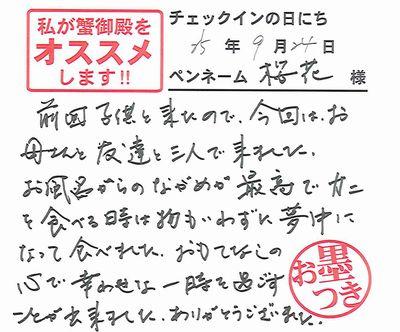 私が蟹御殿を
オススメ
します!!
チェックインの日にち
25年9月24日
ペンネーム 桜花 様
前回子供と来たので、今回は、お
母さんと友達と三人で来ました。
お風呂からのながめが最高でカニ
を食べる時は物もいわずに夢中に
なって食べました。おもてなしの
心で幸わせな一時を過ごす
ことが出来ました、ありがとうございました
お墨つき